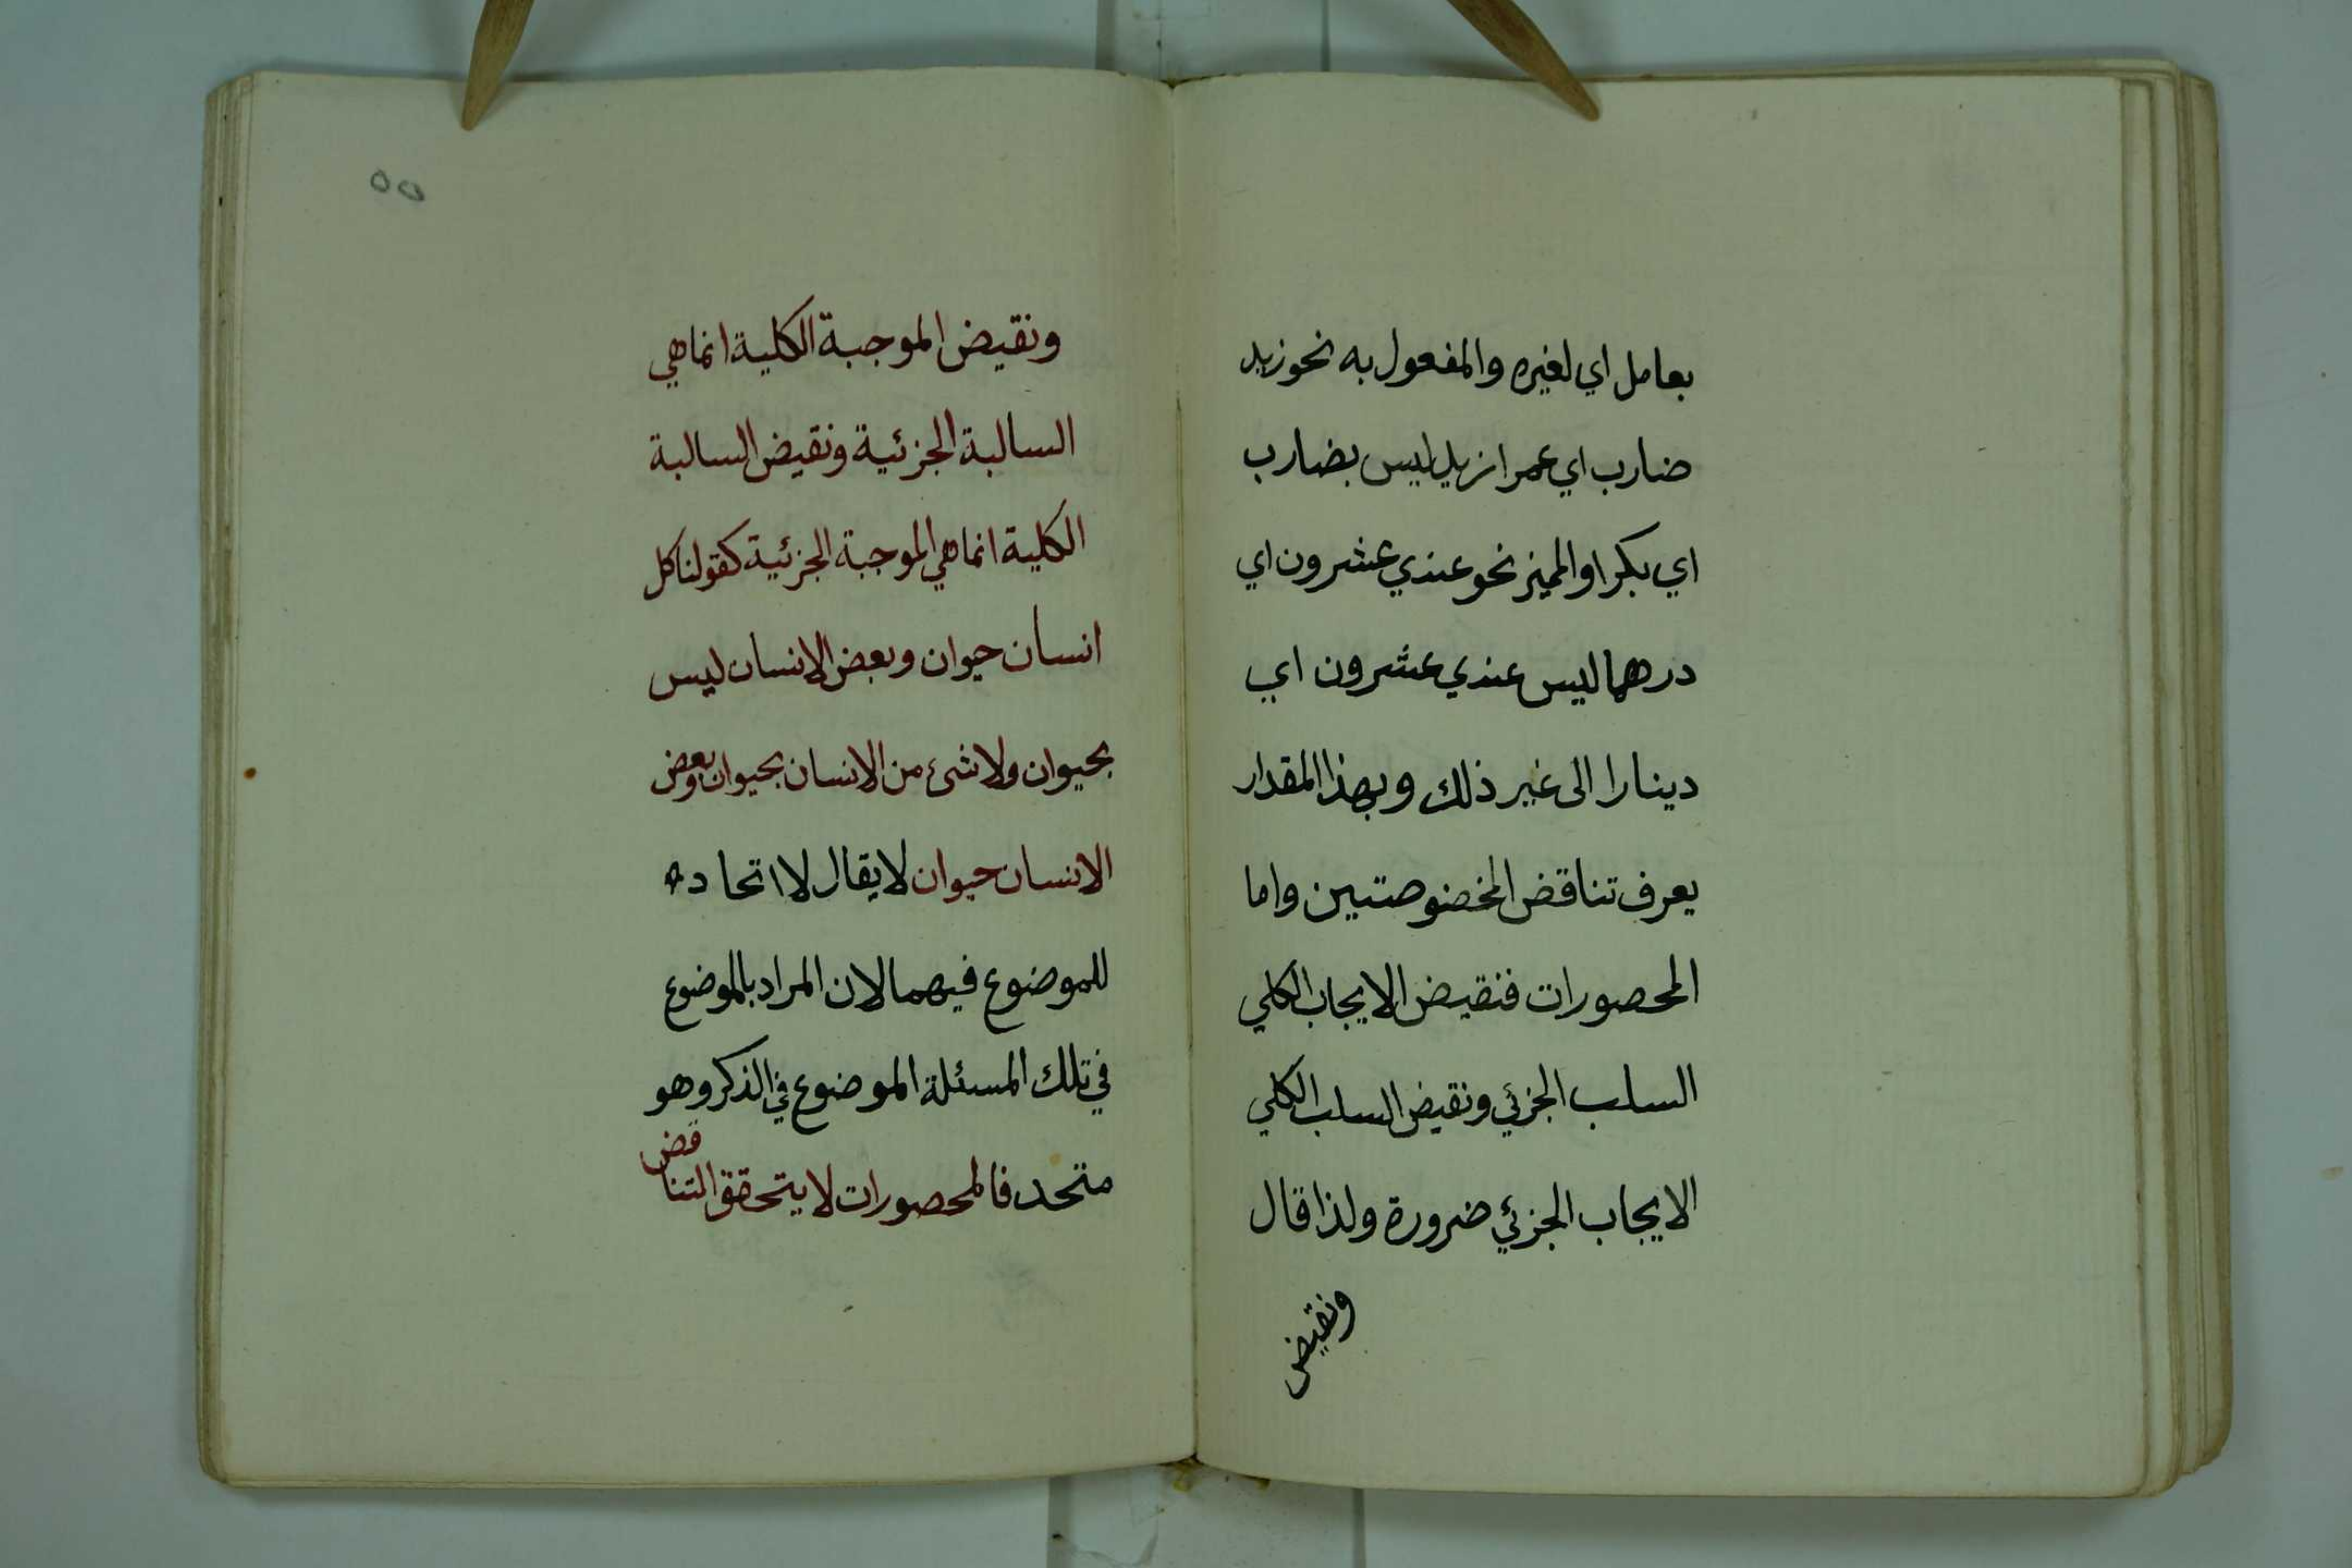 بعامل اي لغيره والمفعول به نحو زيد
ضارب اي عمرا زيد ليس بضارب
اي بكرا والمميز نحو عندي عشرون اي
درهما ليس عندي عشرون اي
دينارا الى غير ذلك وبهذا المقدار
يعرف تناقض المخضوصتين واما
المحصورات فنقيض الايجاب الكلي
السلب الجزئي ونقيض السلب الكلي
الايجاب الجزئي ضرورة ولذا قال
ونقيض
٥٥
ونقيض الموجبة الكلية انما هي
السالبة الجزئية ونقيض السالبة
الكلية انما هي الموجبة الجزئية كقولنا كل
انسان حيوان وبعض الانسان ليس
بحيوان ولا شئ من الانسان بحيوان وبعض
الانسان حيوان لا يقال لا اتحاد
للموضوع فيهما لان المراد بالموضوع
في تلك المسئلة الموضوع في الذكر وهو
متحد فالمحصورات لا يتحقق التناقض